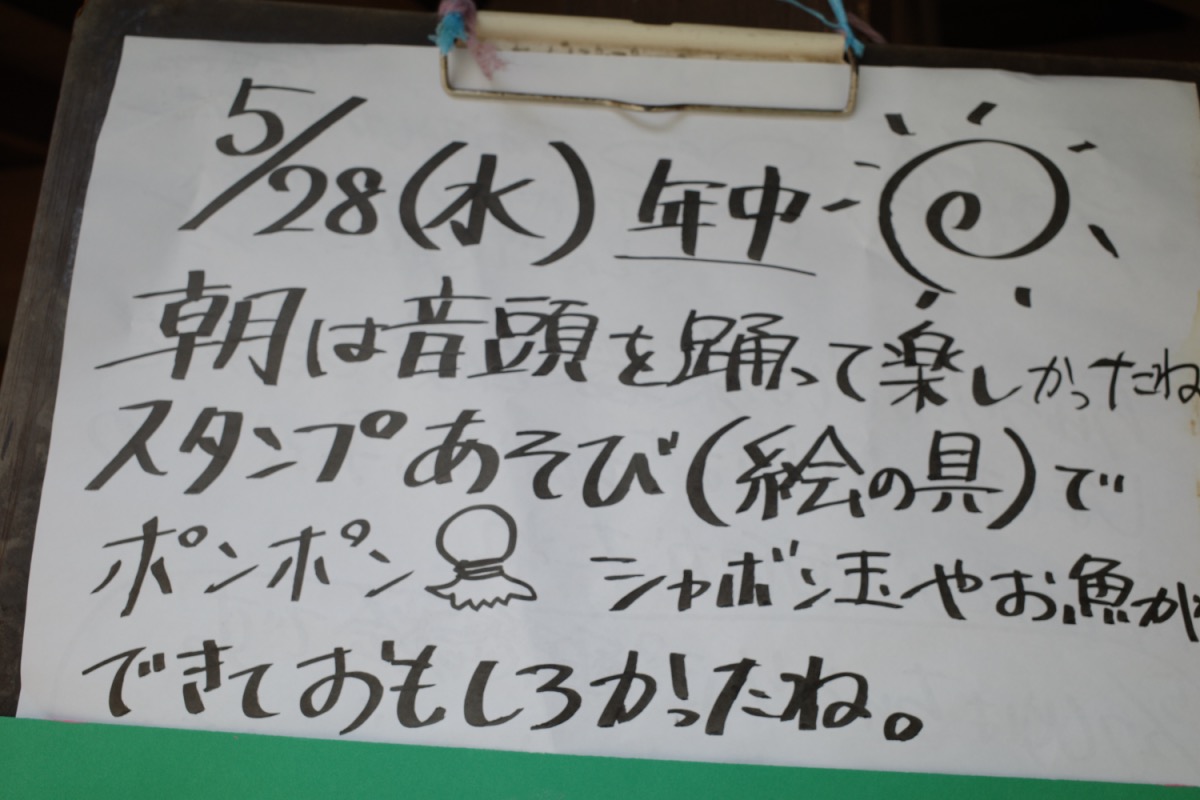 5/28(水) 年中
朝は音頭を踊って楽しかったね
スタンプあそび(絵の具)で
ポンポン シャボン玉やお魚が
できておもしろかったね。